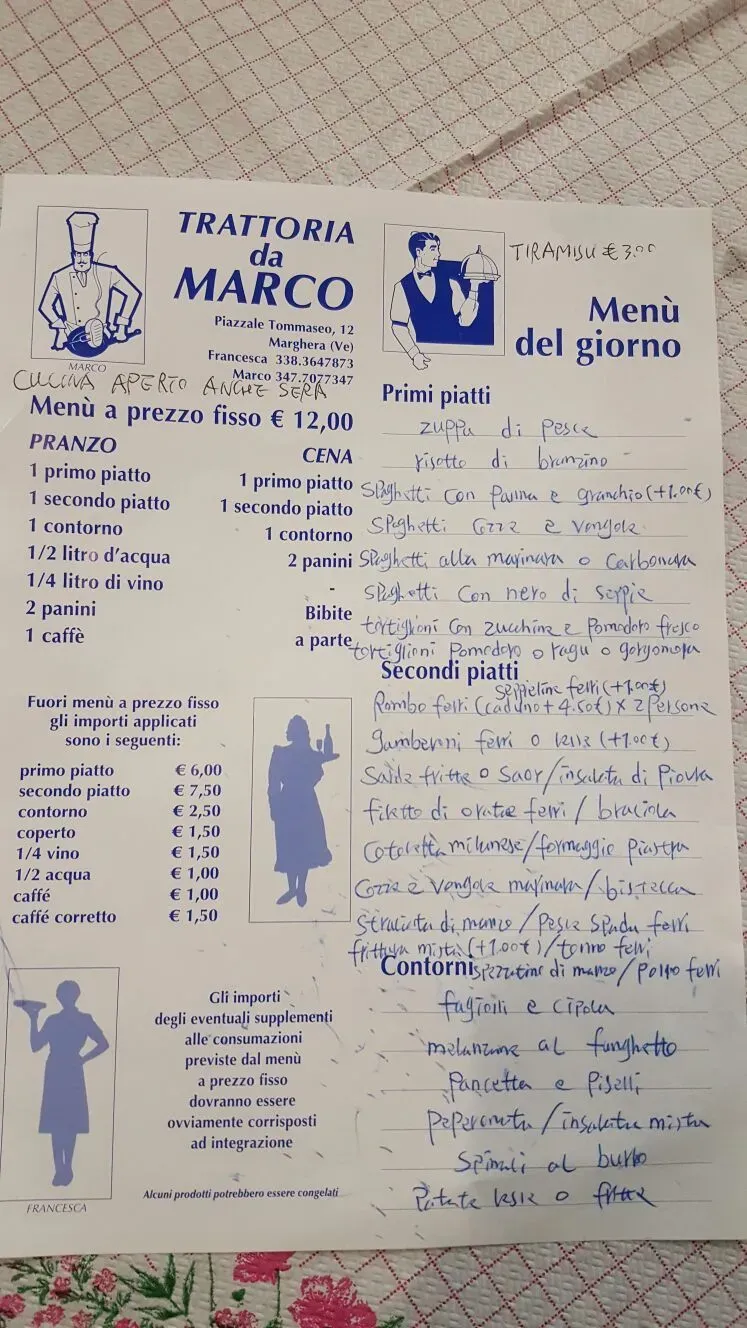 TRATTORIA
da
MARCO
Piazzale Tommaseo, 12
Marghera (Ve)
Francesca 338.3647873
Marco 347.7077347
MARCO
CUCINA APERTO ANCHE SERA
Menù a prezzo fisso € 12,00
PRANZO
1 primo piatto
1 secondo piatto
1 contorno
1/2 litro d'acqua
1/4 litro di vino
2 panini
1 caffè
CENA
1 primo piatto
1 secondo piatto
1 contorno
2 panini
-
Bibite
a parte
Fuori menù a prezzo fisso
gli importi applicati
sono i seguenti:
primo piatto € 6,00
secondo piatto € 7,50
contorno € 2,50
coperto € 1,50
1/4 vino € 1,50
1/2 acqua € 1,00
caffé € 1,00
caffé corretto € 1,50
Gli importi
degli eventuali supplementi
alle consumazioni
previste dal menù
a prezzo fisso
dovranno essere
ovviamente corrisposti
ad integrazione
Alcuni prodotti potrebbero essere congelati
FRANCESCA
TIRAMISU € 3.00
Menù
del giorno
Primi piatti
zuppa di pesce
risotto di branzino
Spaghetti con panna e granchio (+1.00€)
Spaghetti cozze e vongole
Spaghetti alla marinara o carbonara
Spaghetti con nero di seppie
tortiglioni con zucchine e pomodoro fresco
tortiglioni pomodoro o ragu o gorgonzola
Secondi piatti
seppioline ferri (+1.00€)
Rombo ferri (caduno + 4.50€) x 2 persone
gamberoni ferri o lessi (+1.00€)
Sarde fritte o saor / insalata di piovra
filetto di orate ferri / braciola
Cotoletta milanese / formaggio piastra
Cozze e vongole marinara / bistecca
Straccetti di manzo / pesce spada ferri
frittura mista (+1.00€) / tonno ferri
spezzatino di manzo / polpo ferri
Contorni
fagioli e cipolla
melanzane al funghetto
pancetta e piselli
peperonata / insalata mista
Spinaci al burro
Patate lesse o fritte